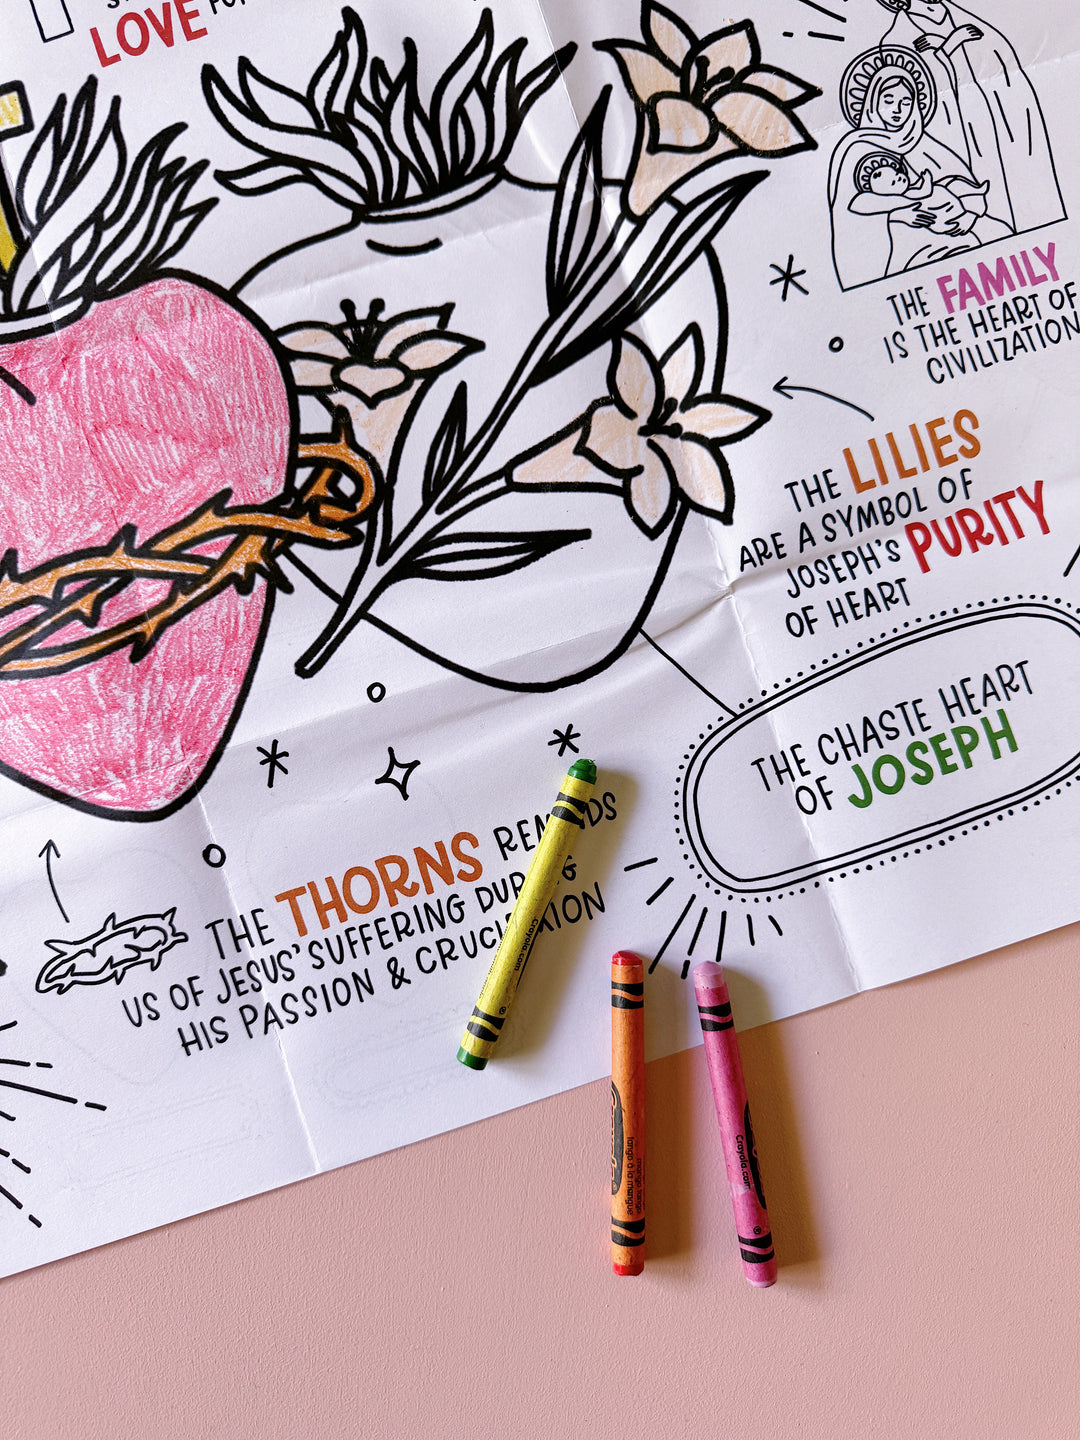 LOVE
THE FAMILY
IS THE HEART OF
CIVILIZATION
THE LILIES
ARE A SYMBOL OF
JOSEPH'S PURITY
OF HEART
THE CHASTE HEART
OF JOSEPH
THE THORNS
US OF JESUS' SUFFERING
HIS PASSION &
Crayola.com
Crayola
mango tango
tango à la mangue
Crayola.com